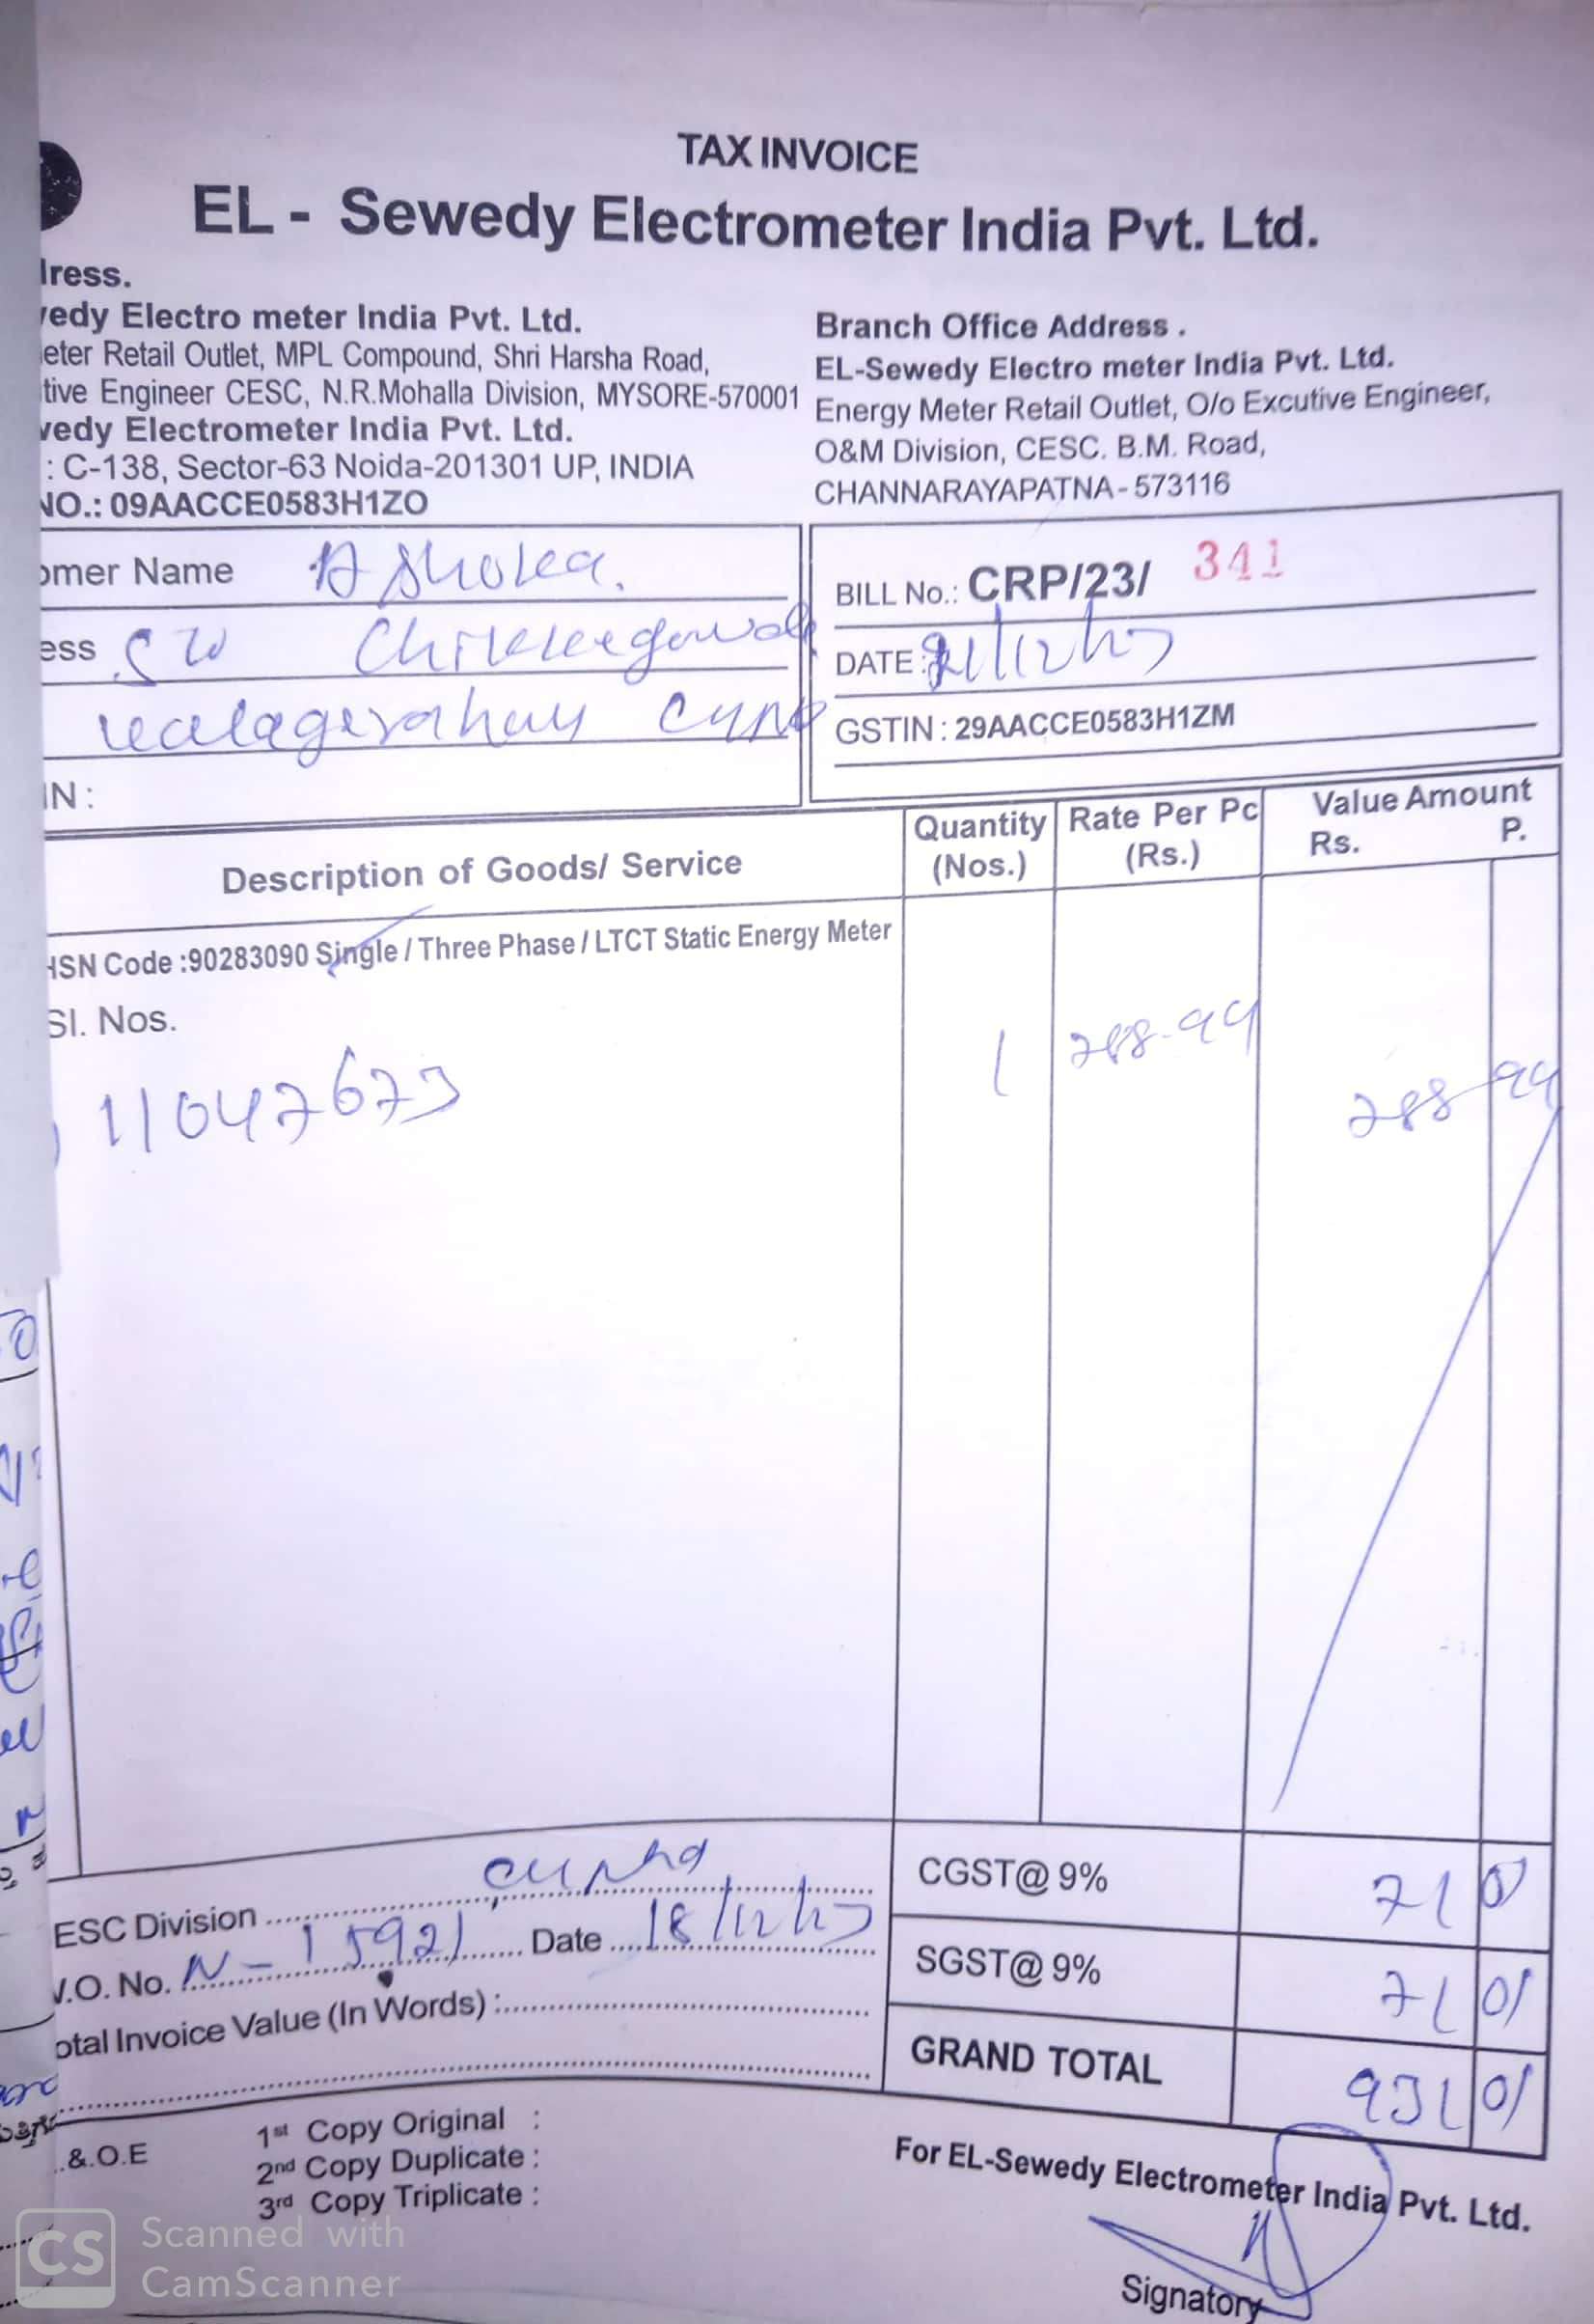 TAX INVOICE
EL - Sewedy Electrometer India Pvt. Ltd.
dress.
vedy Electro meter India Pvt. Ltd.
eter Retail Outlet, MPL Compound, Shri Harsha Road,
tive Engineer CESC, N.R.Mohalla Division, MYSORE-570001
vedy Electrometer India Pvt. Ltd.
: C-138, Sector-63 Noida-201301 UP, INDIA
NO.: 09AACCE0583H1ZO
Branch Office Address .
EL-Sewedy Electro meter India Pvt. Ltd.
Energy Meter Retail Outlet, O/o Excutive Engineer,
O&M Division, CESC. B.M. Road,
CHANNARAYAPATNA - 573116
omer Name Ashoka.
ess
IN :
BILL No.: CRP/23/ 341
DATE : 21/12/23
GSTIN : 29AACCE0583H1ZM
Description of Goods/ Service
Quantity (Nos.)
Rate Per Pc (Rs.)
Value Amount
Rs. P.
HSN Code :90283090 Single / Three Phase / LTCT Static Energy Meter
Sl. Nos.
11047673
1
788-99
788 99
ESC Division
V.O. No. N-15921 Date 18/12/23
otal Invoice Value (In Words) :
CGST@ 9% 71 01
SGST@ 9% 71 01
GRAND TOTAL 931 01
.&.O.E
1st Copy Original :
2nd Copy Duplicate :
3rd Copy Triplicate :
For EL-Sewedy Electrometer India Pvt. Ltd.
Signatory
CS Scanned with
CamScanner